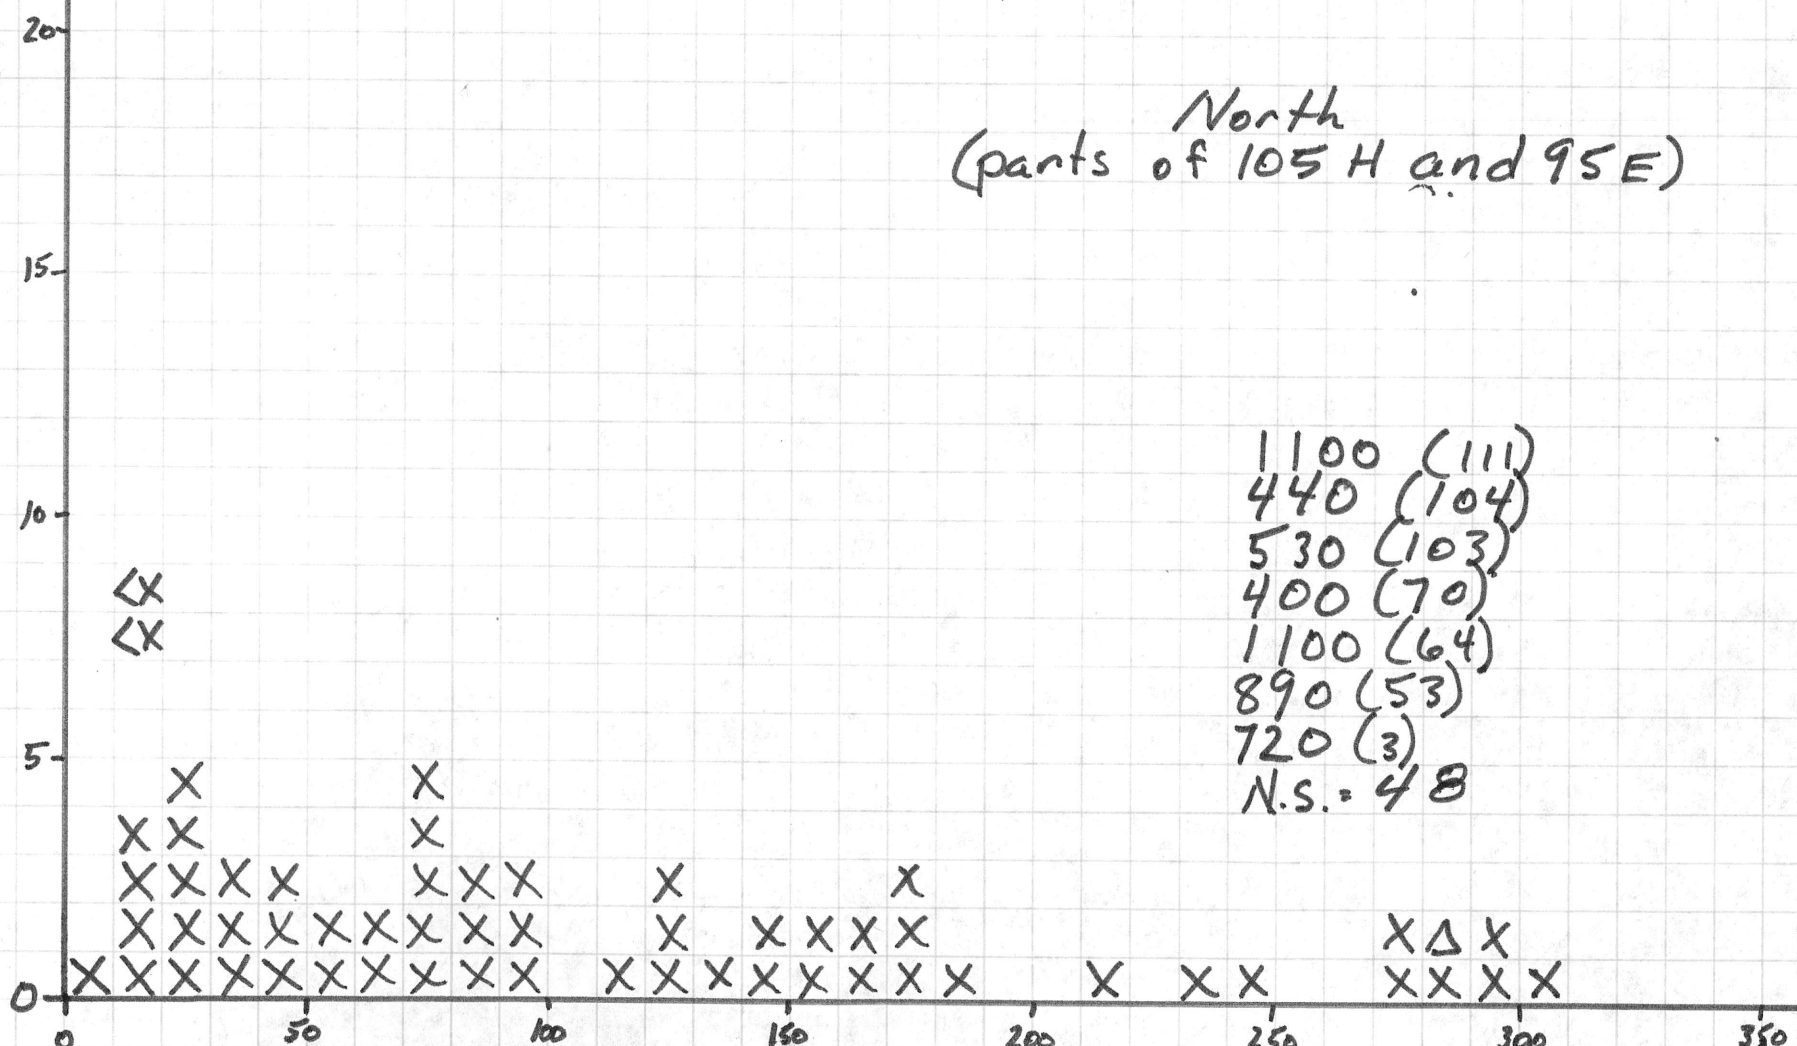 20
North
(parts of 105 H and 95 E)
15
1100 (111)
10
440 (104)
530 (103)
400 (70)
<X
<X
1100 (64)
890 (53)
5
720 (3)
N.S. = 48
X X
X X X
X X X X X X X X X
X X X X X X X X X X X X X X X Δ X
X X X X X X X X X X X X X X X X X X X X X X X X X X
0
0 50 100 150 200 250 300 350